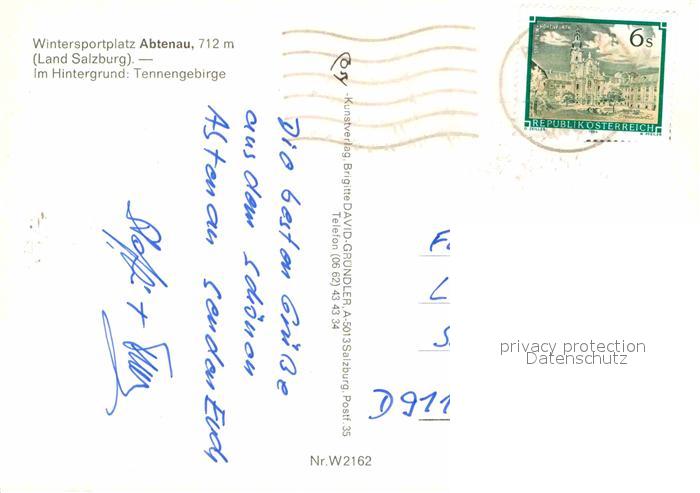 Wintersportplatz Abtenau, 712 m
(Land Salzburg). —
Im Hintergrund: Tennengebirge
Die besten Grüße
aus dem schönen
Abtenau senden Euch
Kunstverlag, Brigitte DAVID-GRÜNDLER, A-5013 Salzburg, Postf. 35
Telefon (06 62) 43 43 34
Nr. W2162
6 S
REPUBLIK ÖSTERREICH
F.
L
S.
D911
privacy protection
Datenschutz